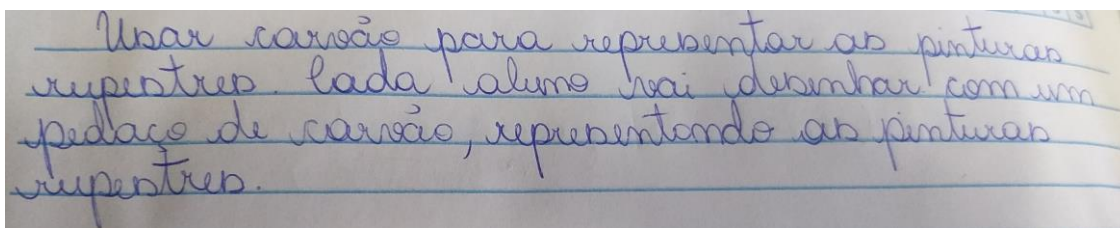 Usar carvão para representar as pinturas
rupestres. Cada aluno vai desenhar com um
pedaço de carvão, representando as pinturas
rupestres.